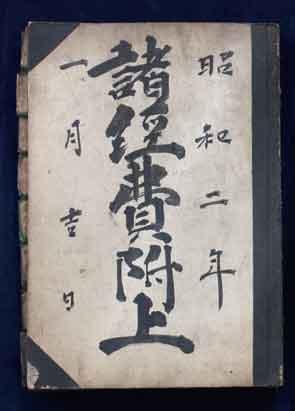 昭和二年
諸經費附上
一月吉日